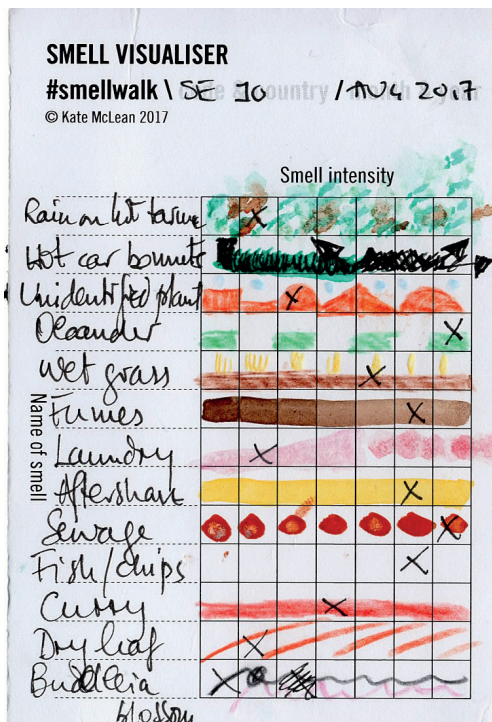 SMELL VISUALISER
#smellwalk \ SE 10 code & country / AUG 2017 month & year
© Kate McLean 2017
Smell intensity
Name of smell
Rain on hot tarmac
Hot car bonnets
Unidentified plant
Oleander
Wet grass
Fumes
Laundry
Aftershave
Sewage
Fish/chips
Curry
Dry leaf
Buddleia
blossom